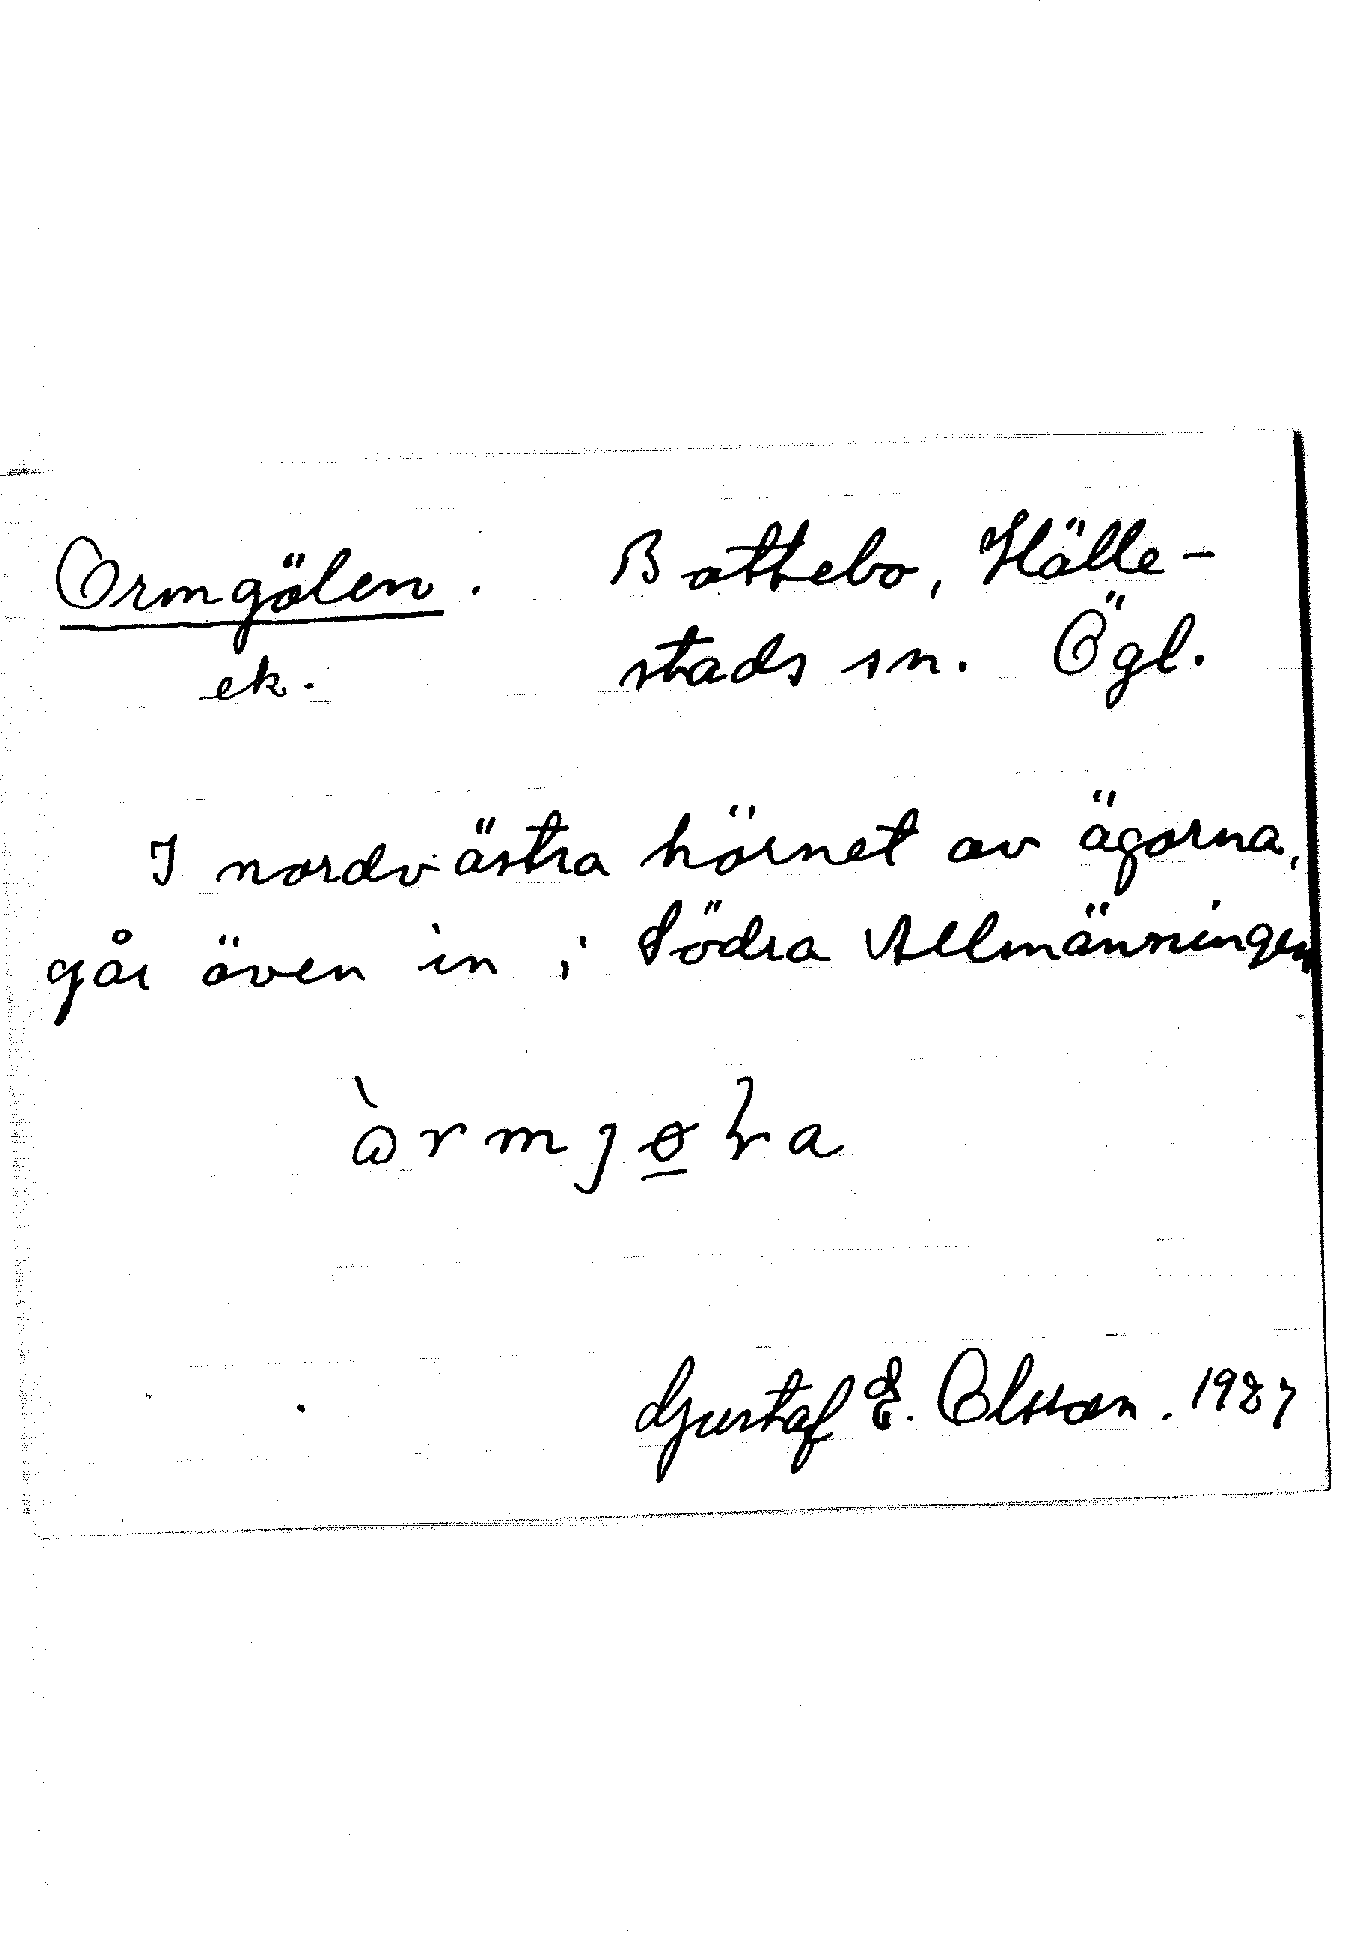 Ormgölen. Bottebo, Hälle-
ek. stads sn. Ögl.
I nordvästra hörnet av ägorna,
går även in i Södra Allmänningen
Gustaf E. Olsson. 1987